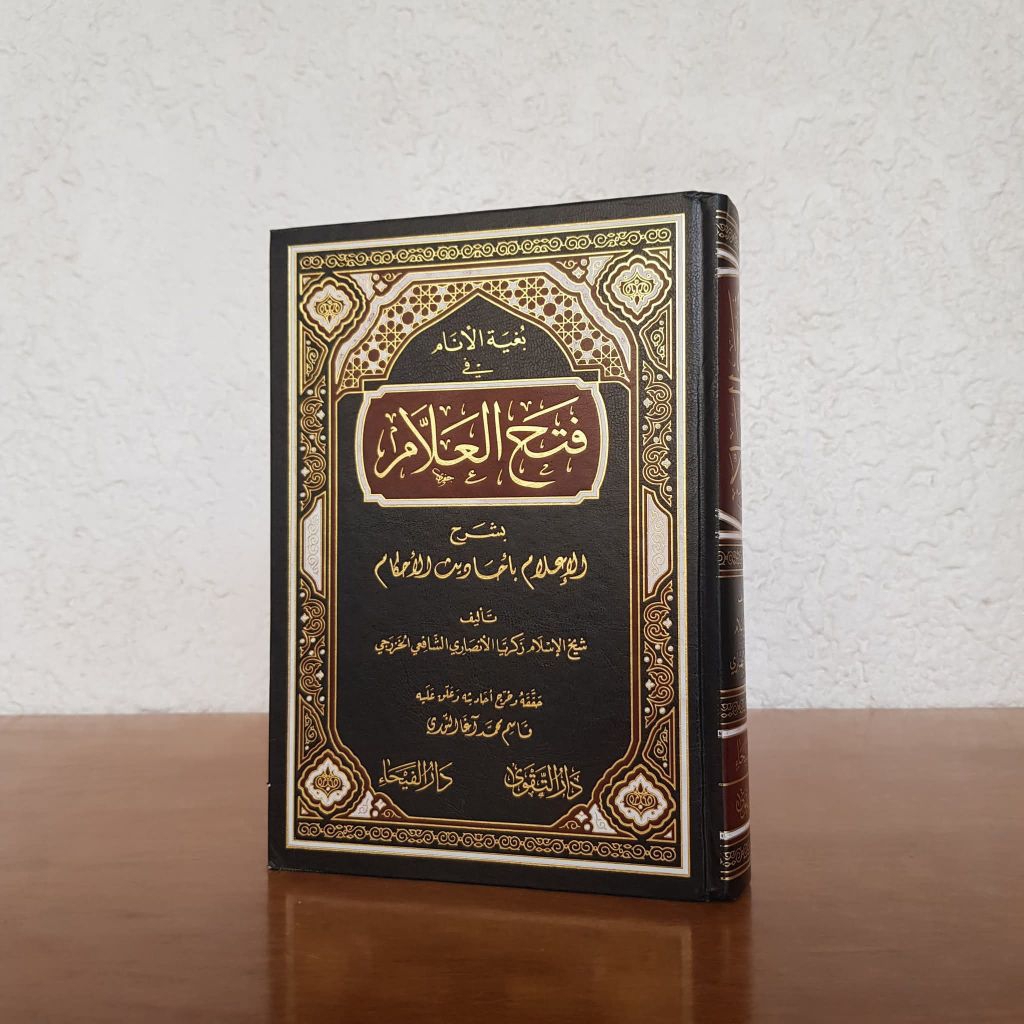 بُغية الأنام
في
فتح العلّام
بشرح
الإعلام بأحاديث الأحكام
تأليف
شيخ الإسلام زكريا الأنصاري الشافعي الخزرجي
حققه وخرج أحاديثه وعلق عليه
قاسم محمد آغا النوري
دار التقوى
دار الفيحاء